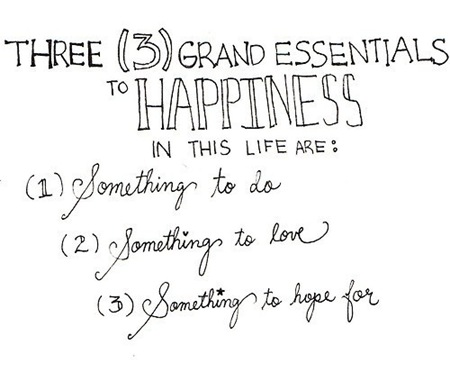 THREE (3) GRAND ESSENTIALS
TO HAPPINESS
IN THIS LIFE ARE:
(1) Something to do
(2) Something to love
(3) Something to hope for